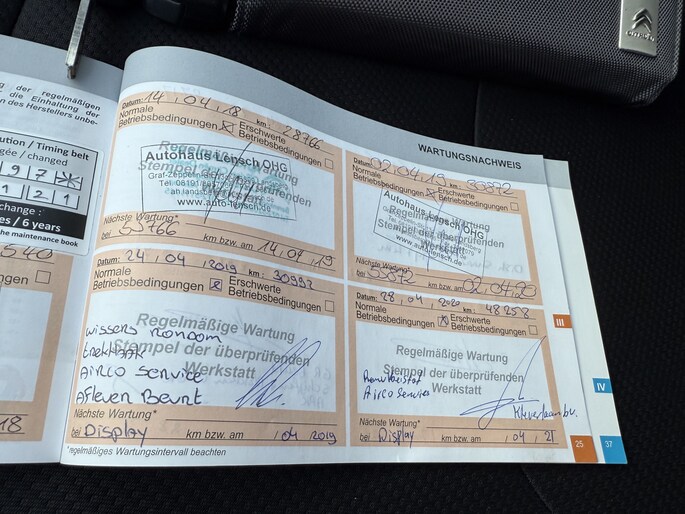 CITROËN
ng der regelmäßigen
die Einhaltung der
en des Herstellers unbe-
ution / Timing belt
gée / changed
9 7
1 2 1
change :
s / 6 years
the maintenance book
540
18
WARTUNGSNACHWEIS
Datum: 14 , 04 , 18 km : 28766
Normale Betriebsbedingungen ☒ Erschwerte Betriebsbedingungen ☐
Regelmäßige Wartung
Stempel der überprüfenden
Werkstatt
Autohaus Lensch OHG
www.auto-lensch.de
Nächste Wartung*
bei 53766 km bzw. am 14/04/19
Datum: 02.04.19 km :
Normale Betriebsbedingungen ☒ Erschwerte Betriebsbedingungen ☐
Regelmäßige Wartung
Stempel der überprüfenden
Werkstatt
Autohaus Lensch OHG
www.autolensch.de
Nächste Wartung*
bei km bzw. am 02.04.20
Datum: 24 , 04 , 2019 km : 30992
Normale Betriebsbedingungen ☒ Erschwerte Betriebsbedingungen ☐
Regelmäßige Wartung
Stempel der überprüfenden
Werkstatt
wissers rondom
trekhaak
Airco service
Afleven Beurt
Nächste Wartung*
bei Display km bzw. am , 04 , 2019
*regelmäßiges Wartungsintervall beachten
Datum: 28 , 04 , 2020 km : 48258
Normale Betriebsbedingungen ☒ Erschwerte Betriebsbedingungen ☐
Regelmäßige Wartung
Stempel der überprüfenden
Werkstatt
Airco Service
Nächste Wartung*
bei Display km bzw. am , 04 , 21
III
IV
25
37